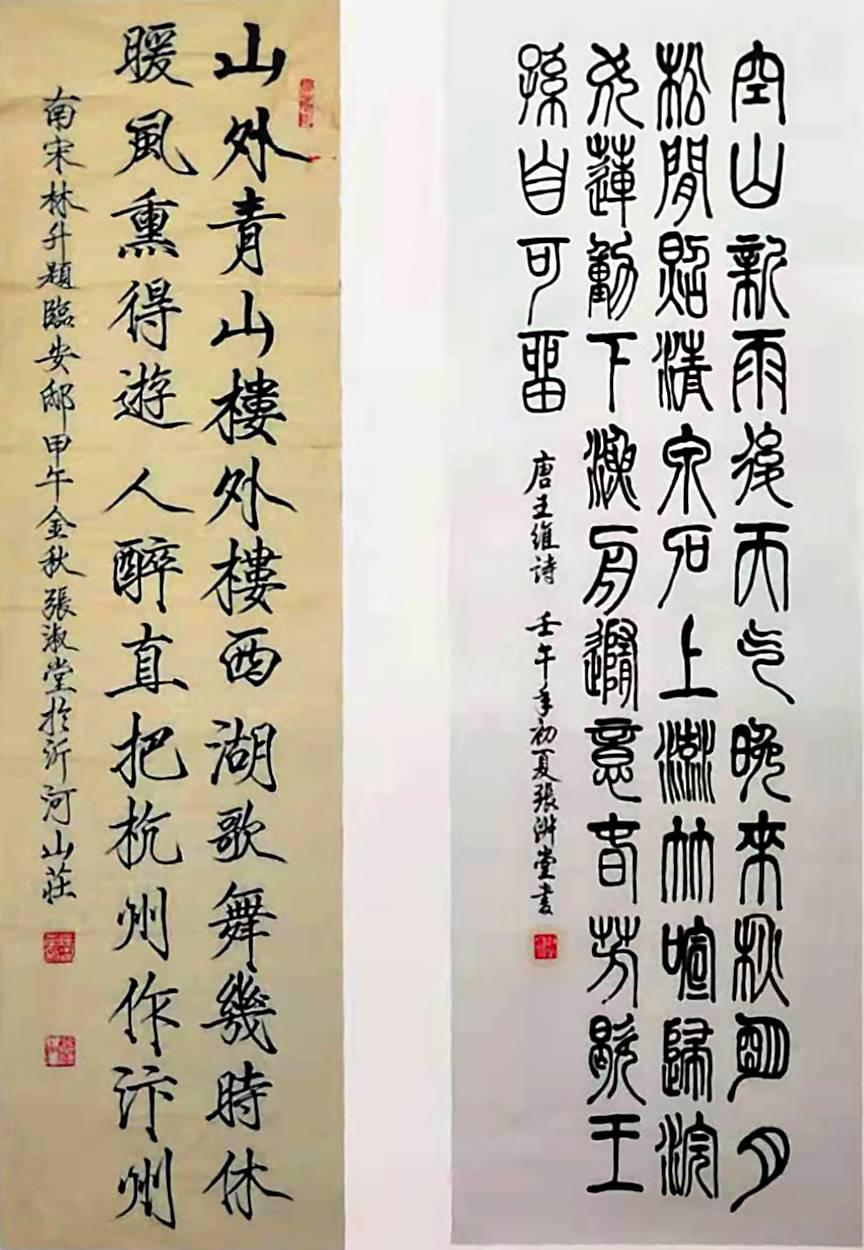 空山新雨後天气晚來秋朙月
松閒照清泉石上流竹喧歸浣
女蓮動下漁舟隨意春芳歇王
孫自可留
唐王維詩 壬午年初夏張淑堂書
山外青山樓外樓西湖歌舞幾時休
暖風熏得遊人醉直把杭州作汴州
南宋林升題臨安邸甲午金秋張淑堂於沂河山莊